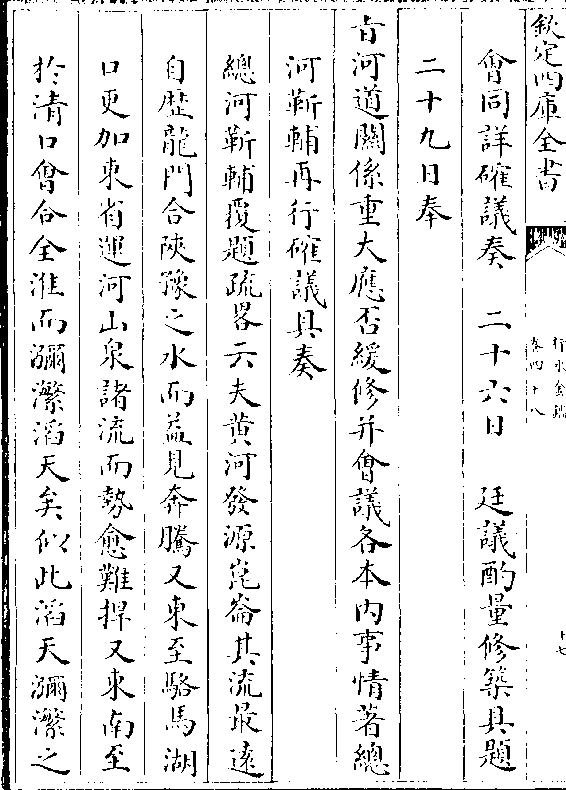 欽定四庫全書
行水金鑑
卷四十八
十七
會同詳確議奏 二十六日 廷議酌量修築具題
二十九日奉
旨河道關係重大應否緩修并會議各本内事情著總
河靳輔再行確議具奏
總河靳輔覆題疏畧云夫黄河發源崑崙其流最遠
自歴龍門合陜豫之水而益見奔騰又東至駱馬湖
口更加東省運河山泉諸流而勢愈難捍又東南至
於清口會合全淮而瀰漾滔天矣似此滔天瀰漾之